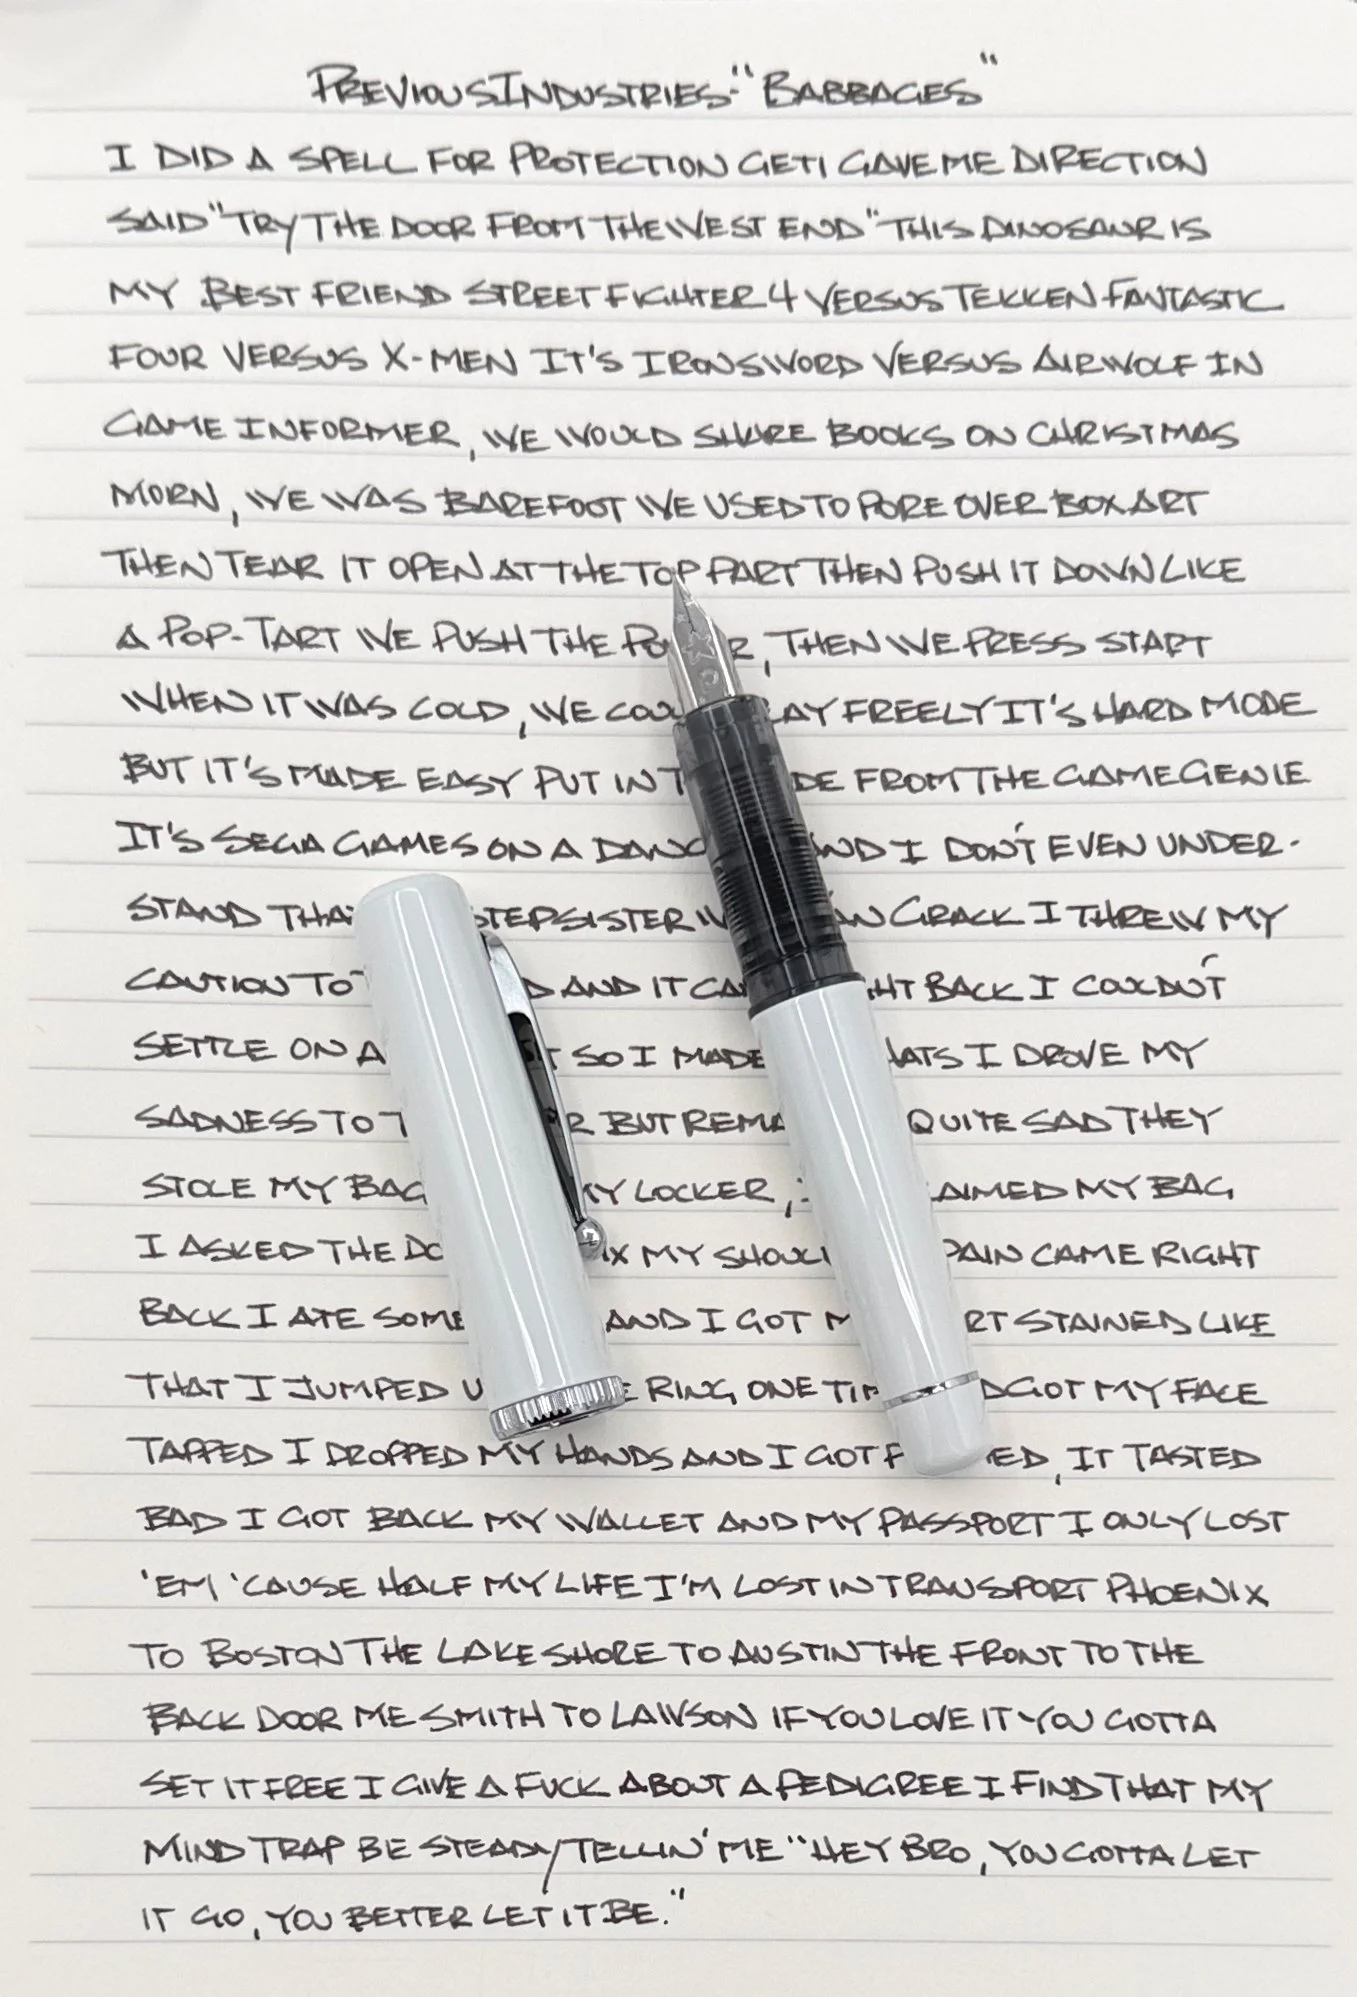 PREVIOUS INDUSTRIES - "BABBAGES"
I DID A SPELL FOR PROTECTION GETI GAVE ME DIRECTION
SAID "TRY THE DOOR FROM THE WEST END" THIS DINOSAUR IS
MY BEST FRIEND STREET FIGHTER 4 VERSUS TEKKEN FANTASTIC
FOUR VERSUS X-MEN IT'S IRONSWORD VERSUS AIRWOLF IN
GAME INFORMER, WE WOULD SHARE BOOKS ON CHRISTMAS
MORN, WE WAS BAREFOOT WE USED TO PORE OVER BOX ART
THEN TEAR IT OPEN AT THE TOP PART THEN PUSH IT DOWN LIKE
A POP-TART WE PUSH THE , THEN WE PRESS START
WHEN IT WAS COLD, WE FREELY IT'S HARD MODE
BUT IT'S MADE EASY PUT IN FROM THE GAME GENIE
IT'S SEGA GAMES ON A AND I DON'T EVEN UNDER-
STAND STEPSISTER CRACK I THREW MY
CAUTION TO AND IT BACK I COULDN'T
SETTLE ON A SO I MADE I DROVE MY
SADNESS TO BUT QUITE SAD THEY
STOLE MY LOCKER, MY BAG
I ASKED THE MY CAME RIGHT
BACK I ATE AND I GOT STAINED LIKE
THAT I JUMPED RING ONE GOT MY FACE
TAPPED I DROPPED MY HANDS AND I GOT , IT TASTED
BAD I GOT BACK MY WALLET AND MY PASSPORT I ONLY LOST
'EM 'CAUSE HALF MY LIFE I'M LOST IN TRANSPORT PHOENIX
TO BOSTON THE LAKESHORE TO AUSTIN THE FRONT TO THE
BACK DOOR ME SMITH TO LAWSON IF YOU LOVE IT YOU GOTTA
SET IT FREE I GIVE A FUCK ABOUT A PEDIGREE I FIND THAT MY
MIND TRAP BE STEADY TELLIN' ME "HEY BRO, YOU GOTTA LET
IT GO, YOU BETTER LET IT BE."